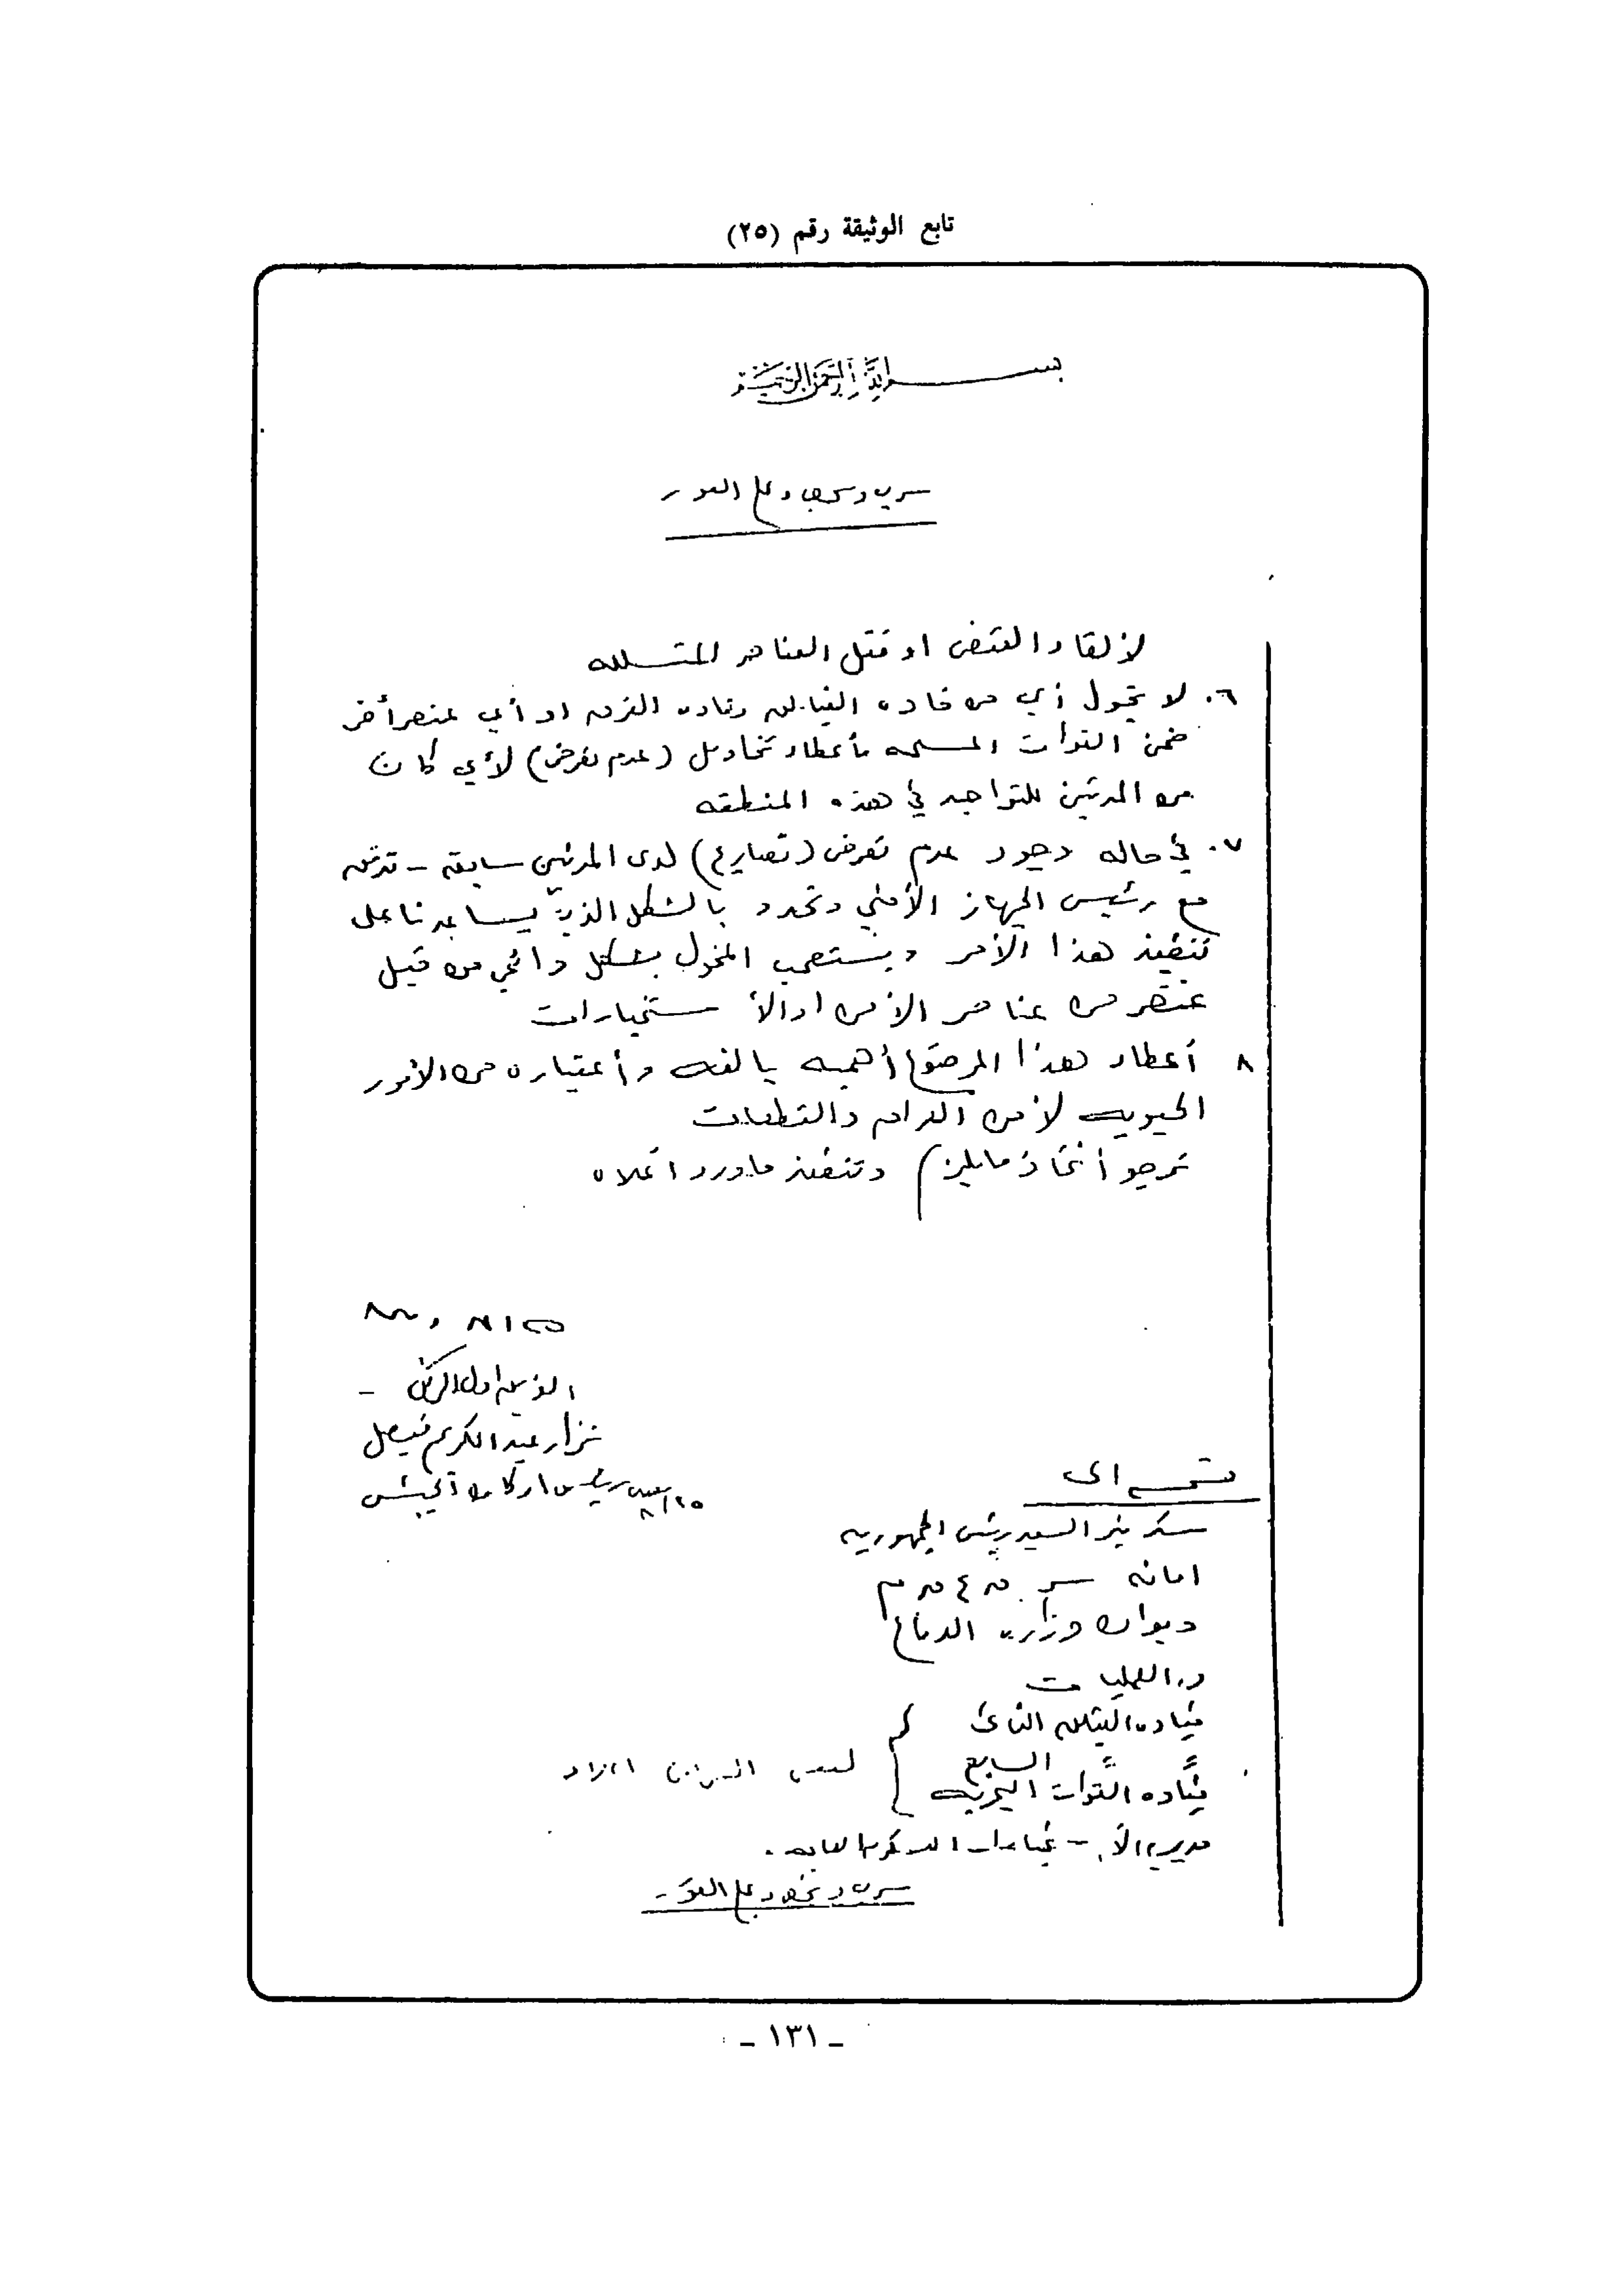 تابع الوثيقة رقم (٢٥)
بسم الله الرحمن الرحيم
سري وشخصي وعلى الفور
لألقاء القبض او قتل العناصر المتسلله
٠٦ لا يخول أي من قاده الفيالق وقاده الفرق او أي عنصر أخر
ضمن القوات المسلحه بأعطاء تخاويل (عدم تعرض) لأي كان
من المدنين للتواجد في هذه المنطقه
٠٧ في حاله وجود عدم تعرض (تصاريح) لدى المدنين سابقه – تدقق
مع رئيس الجهاز الأمني وتحدد بالشكل الذي يساعدنا على
تنفيذ هذا الأمر ويستصحب المخول بشكل دائمي من قبل
عنصر من عناصر الأمن او الأستخبارات
٨ أعطاء هذا الموضوع أهميه بالغه وأعتباره من الأمور
الحيويه لأمن الفرق والقطعات
نرجو أتخاذ مايلزم وتنفيذ ماورد اعلاه
الفريق اول الركن
نزار عبد الكريم فيصل
رئيس اركان الجيش
٨/٢٥
نسخه الى
سكرتير السيد رئيس الجمهوريه
امانه سر ق ع ق م
ديوان وزاره الدفاع
د. العمليات
قياده الفيلق الثاني
السابع
قياده القوات البحريه
مديريه الأستخبارات العسكريه العامه .
سري وشخصي وعلى الفور
- ١٣١ -